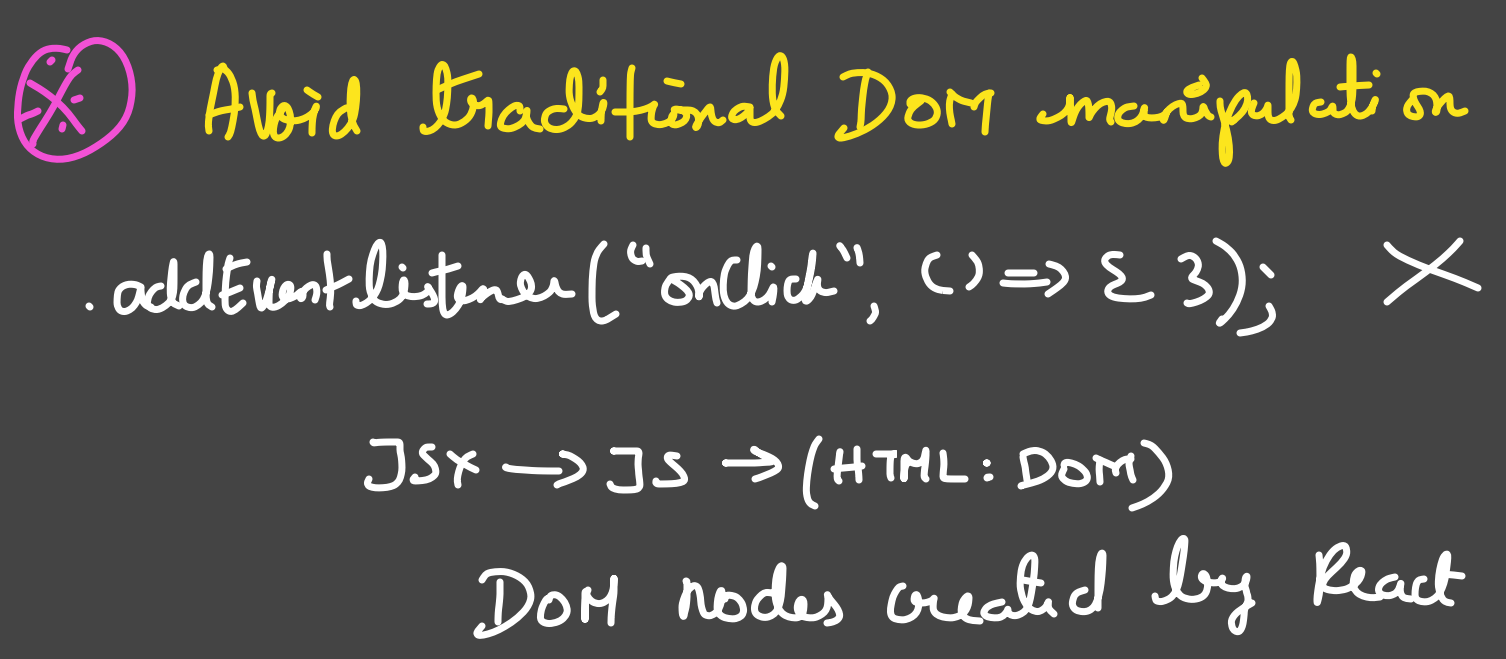 Avoid traditional DOM manipulation
.addEventListener("onClick", () => { });
JSX → JS → (HTML: DOM)
DOM nodes created by React